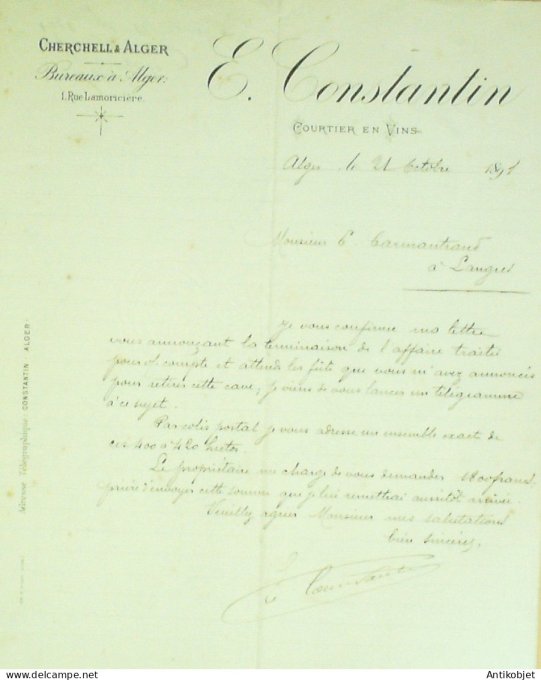 CHERCHELL & ALGER
Bureaux à Alger:
1, Rue Lamoricière.
E. Constantin
COURTIER EN VINS
Alger le 21 Octobre 1891
Monsieur C. Carmantrand
à Langres
Je vous confirme ma lettre
vous annonçant la terminaison de l'affaire traitée
pour v/ compte et attends les fûts que vous m'avez annoncés
pour retirer cette cave; je viens de vous lancer un télégramme
à ce sujet.
Par colis postal je vous adresse un ensemble exact de
ces 400 à 420 hectos.
Le propriétaire me charge de vous demander 1800 francs
prière d'envoyer cette somme que lui remettrai aussitôt arrivée.
Veuillez agréer Monsieur mes salutations
bien sincères,
E. Constantin
Adresse Télégraphique CONSTANTIN ALGER.
Antikobjet